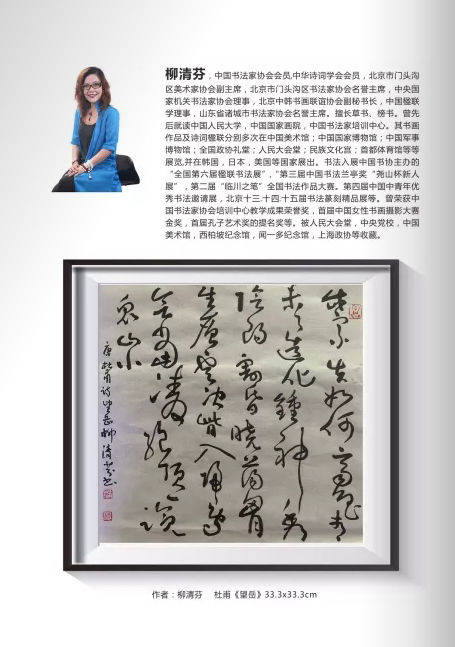 柳清芬，中国书法家协会会员,中华诗词学会会员，北京市门头沟
区美术家协会副主席，北京市门头沟区书法家协会名誉主席，中央国
家机关书法家协会理事，北京中韩书画联谊协会副秘书长，中国楹联
学理事，山东省诸城市书法家协会名誉主席。擅长草书、榜书。曾先
后就读中国人民大学，中国国家画院，中国书法家培训中心。其书画
作品及诗词楹联分别多次在中国美术馆；中国国家博物馆；中国军事
博物馆；全国政协礼堂；人民大会堂；民族文化宫；首都体育馆等等
展览,并在韩国，日本，美国等国家展出。书法入展中国书协主办的
“全国第六届楹联书法展”，“第三届中国书法兰亭奖“尧山杯新人
展”，第二届“临川之笔”全国书法作品大赛。第四届中国中青年优
秀书法邀请展，北京十三.十四.十五届书法篆刻精品展等。曾荣获中
国书法家协会培训中心教学成果荣誉奖，首届中国女性书画摄影大赛
金奖，首届孔子艺术奖的提名奖等。被人民大会堂，中央党校，中国
美术馆，西柏坡纪念馆，闻一多纪念馆，上海政协等收藏。
岱宗夫如何齊魯青
未了造化鍾神秀
陰陽割昏曉蕩胸
生層雲決眥入歸鳥
會當凌絕頂一覽
眾山小
唐杜甫诗望岳柳清芬书
作者：柳清芬 杜甫《望岳》33.3x33.3cm